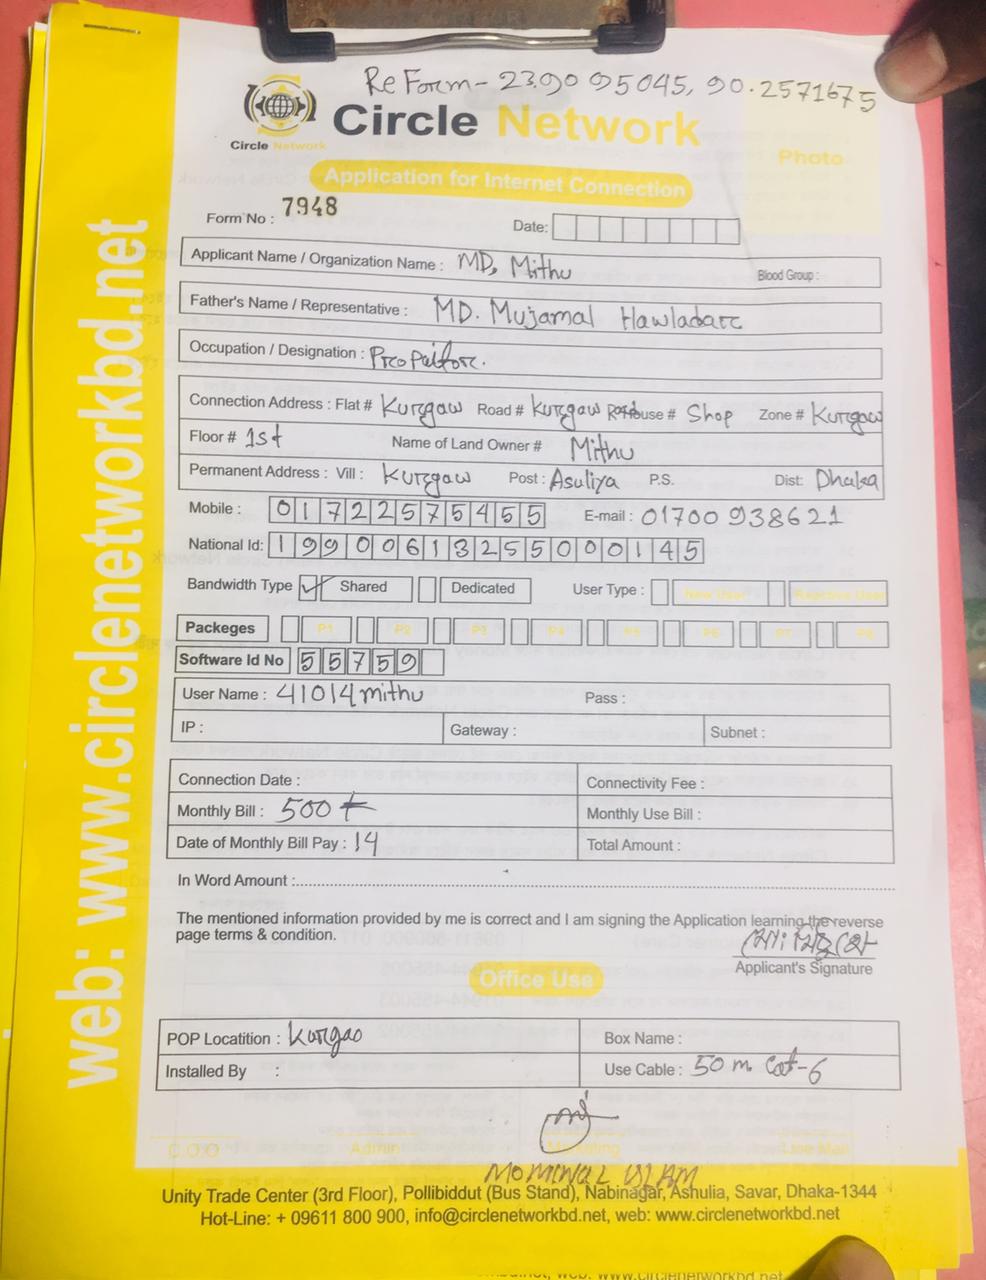 Re Form - 23.90 95045, 90.2571675
Circle Network
Circle Network
Photo
Application for Internet Connection
Form No : 7948
Date:
Applicant Name / Organization Name : MD, Mithu Blood Group :
Father's Name / Representative : MD. Mujamal Hawladarc
Occupation / Designation :
Connection Address : Flat # Kurgaw Road # Kurgaw House # Shop Zone # Kurgaw
Floor # 1st Name of Land Owner # Mithu
Permanent Address : Vill : Kurgaw Post : Asuliya P.S. Dist: Dhaka
Mobile : 01722575455 E-mail : 01700 938621
National Id: 19900613255000145
Bandwidth Type Shared Dedicated User Type : New User Reactive User
Packeges P1 P2 P3 P4 P5 P6 P7 P8
Software Id No 55759
User Name : 41014mithu Pass :
IP : Gateway : Subnet :
Connection Date : Connectivity Fee :
Monthly Bill : 500 Monthly Use Bill :
Date of Monthly Bill Pay : 14 Total Amount :
In Word Amount :
The mentioned information provided by me is correct and I am signing the Application learning the reverse
page terms & condition.
Applicant's Signature
Office Use
POP Locatition : Kurgao Box Name :
Installed By : Use Cable : 50 m Cat-6
C.O.O Admin Marketing Line Man
MOMINUL ISLAM
Unity Trade Center (3rd Floor), Pollibiddut (Bus Stand), Nabinagar, Ashulia, Savar, Dhaka-1344
Hot-Line: + 09611 800 900, info@circlenetworkbd.net, web: www.circlenetworkbd.net
web: www.circlenetworkbd.net